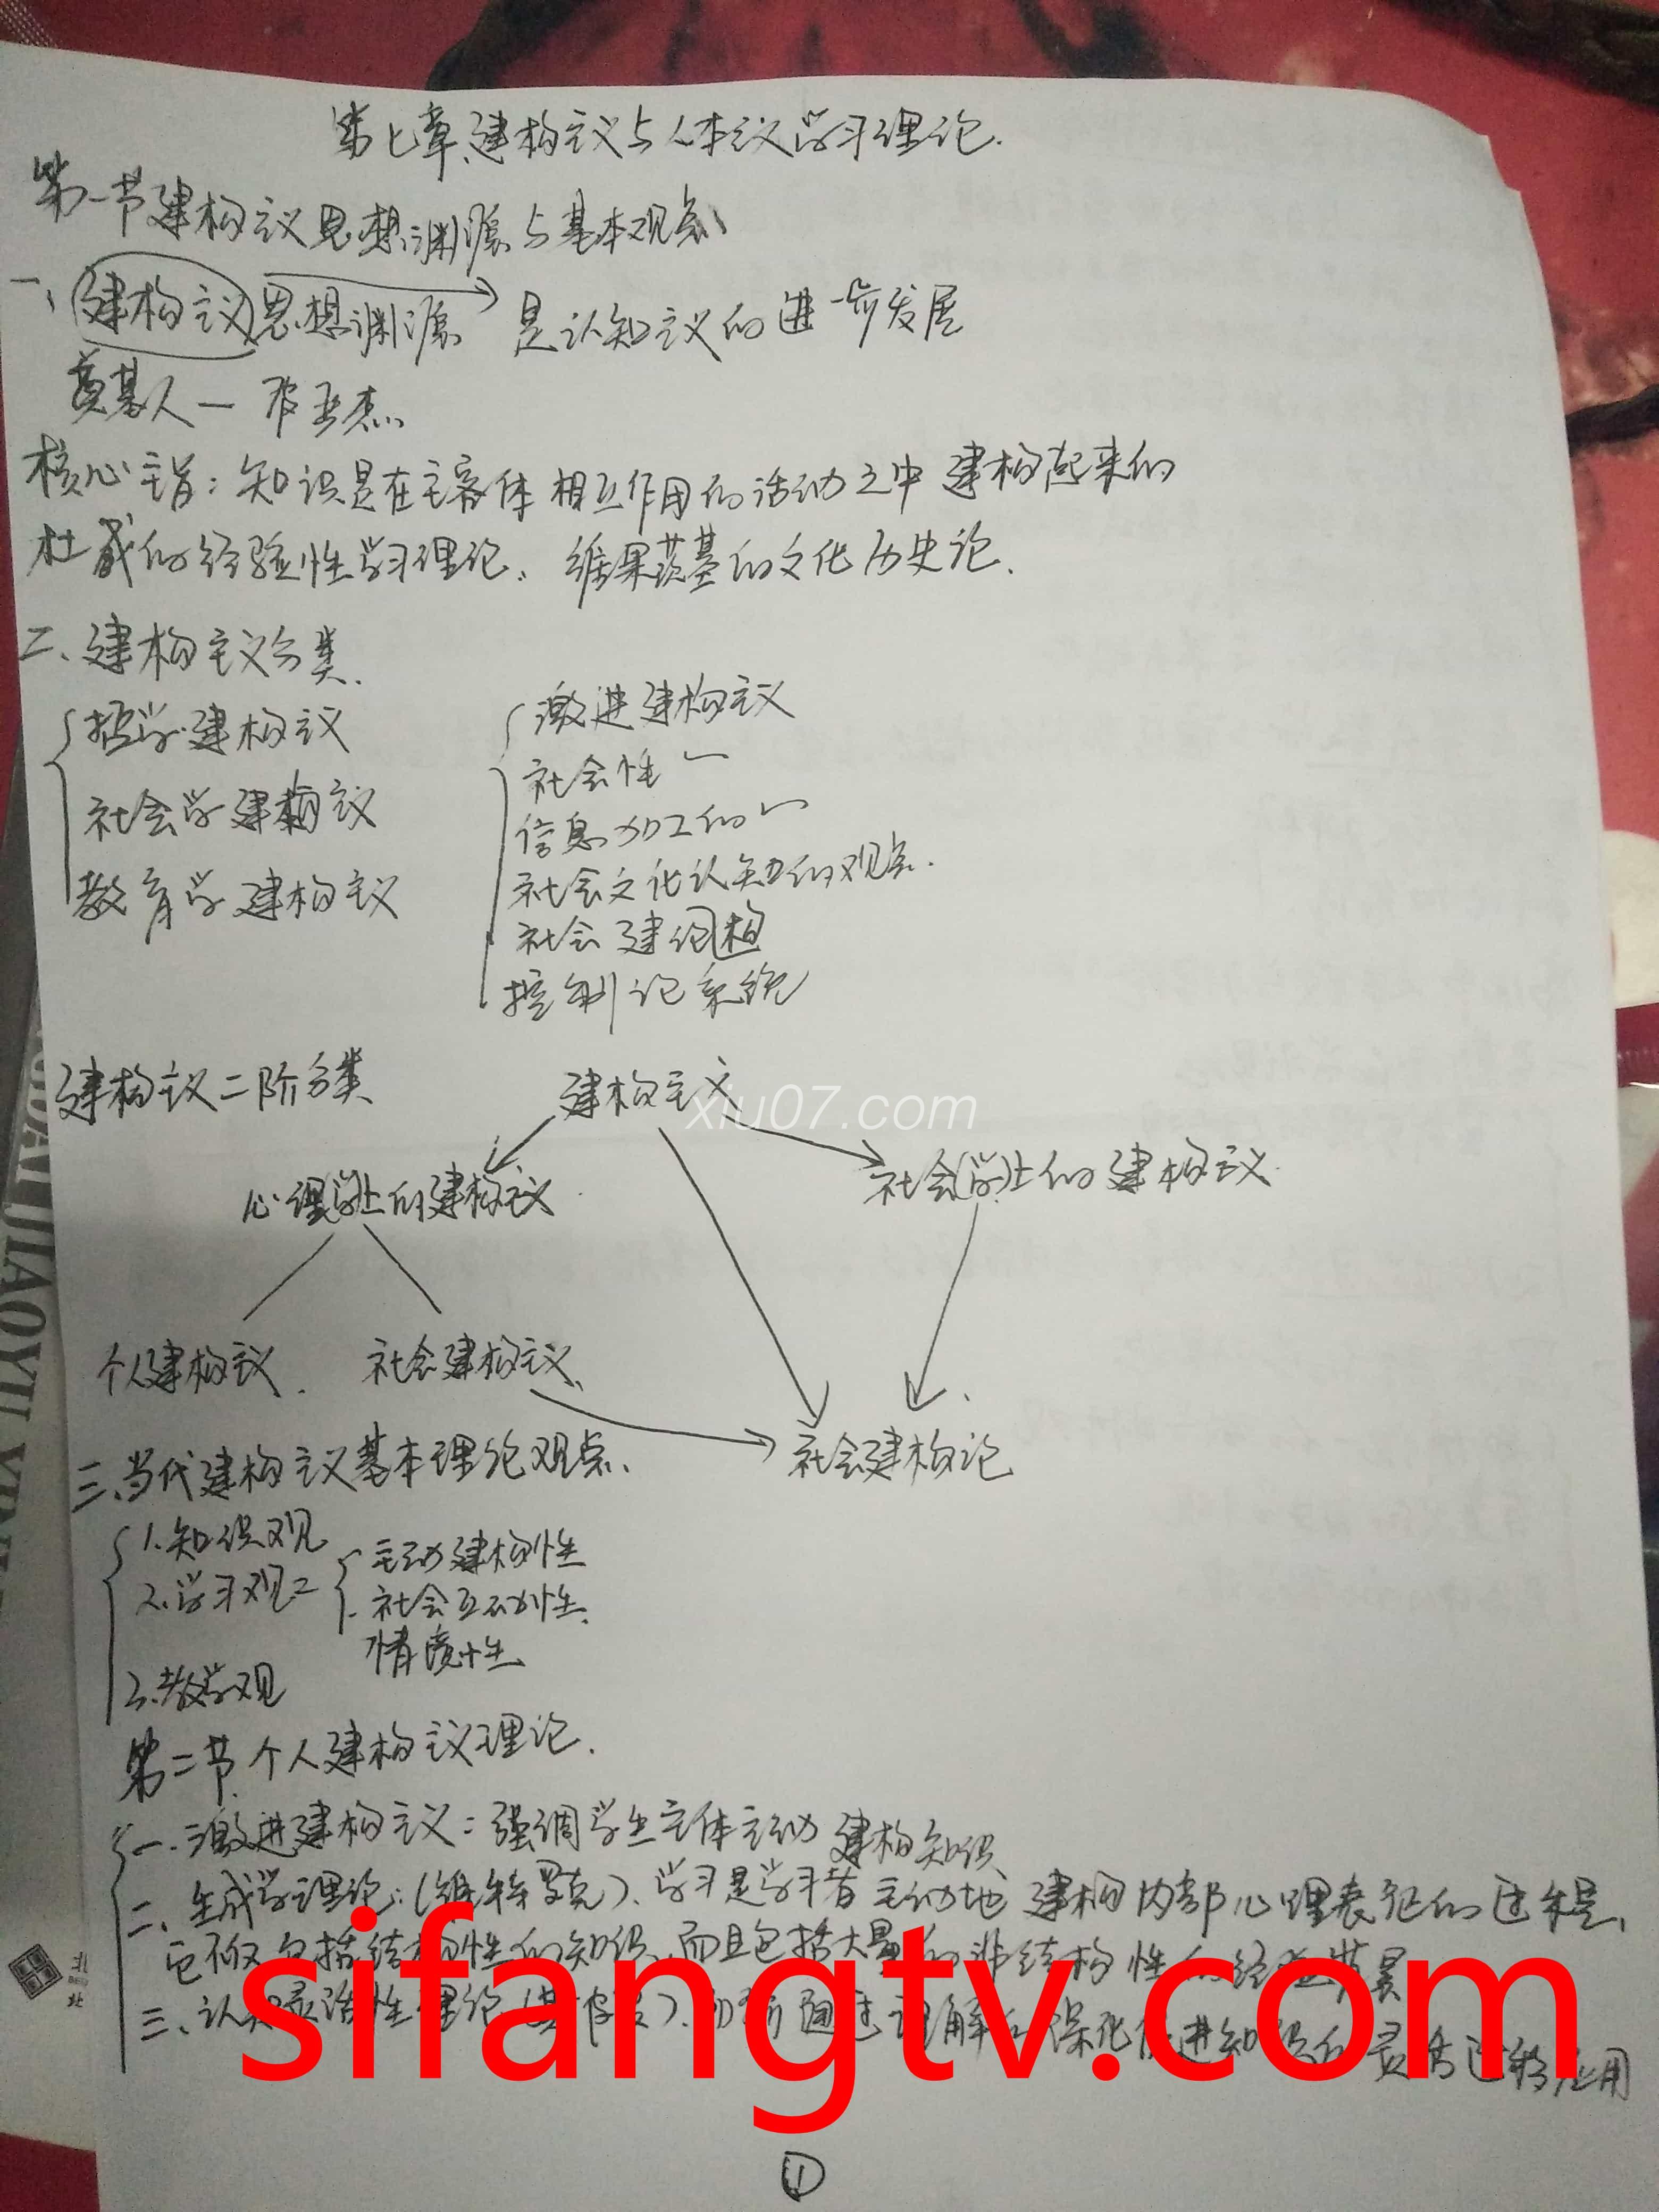 第七章 建构主义与人本主义学习理论.
第一节 建构主义思想渊源与基本观点
一、建构主义思想渊源 是认知主义的进一步发展
奠基人— 皮亚杰、
核心主旨：知识是在主客体相互作用的活动之中建构起来的
杜威的经验性学习理论、维果茨基的文化历史论.
二、建构主义分类.
哲学建构主义
社会学建构主义
教育学建构主义
激进建构主义
社会性〃
信息加工的〃
社会文化认知的观点.
社会建构论
控制论系统
建构主义二阶分类
建构主义
xiu07.com
心理(学)上的建构主义.
社会(学)上的建构主义.
个人建构主义.
社会建构主义.
社会建构论
三、当代建构主义基本理论观点、
1.知识观
2.学习观：
主动建构性
社会互动性
情境性
3.教学观
第二节 个人建构主义理论.
一.激进建构主义：强调学生主体主动建构知识
二、生成学习理论：(维特罗克)、学习是学习者主动地建构内部心理表征的过程、
它不仅包括结构性的知识、而且包括大量的非结构性的经验背景
三、认知灵活性理论(斯皮罗)、通过理解的深化促进知识的灵活迁移应用
sifangtv.com
①
北
北
JIAOYU